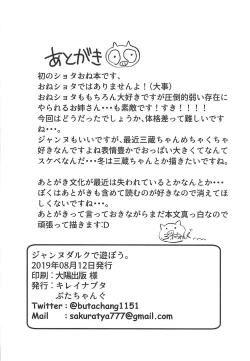 あとがき
初のショタおね本です、
おねショタではありませんよ!(大事)
おねショタももちろん大好きですが圧倒的弱い存在に
やられるお姉さん・・・も素敵です!すき!!!!
今回はどうだったでしょうか、体格差って難しいです
ね・・・。
ジャンヌもいいですが、最近三蔵ちゃんめちゃくちゃ
好きなんですよね表情豊かでおっぱい大きくてなんて
スケベなんだ・・・冬は三蔵ちゃんとか描きたいですね。
あとがき文化が最近は失われているとかなんとか・・・
ぼくはあとがきも含めて読むのが好きなので消えてほ
しくないですね・・・。
あとがきって言っておきながらまだ本文真っ白なので
頑張って描きます:D
ジャンヌダルクで遊ぼう。
2019年08月12日発行
印刷:大陽出版 様
発行:キレイナブタ
ぶたちゃんぐ
Twitter:@butachang1151
Mail :sakuratya777@gmail.com